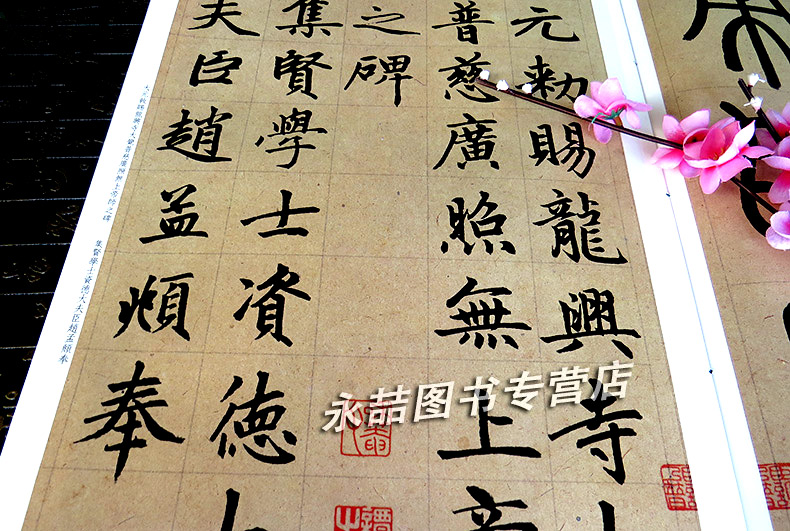 元敕賜龍興寺大
普慈廣照無上帝
之碑
集賢學士資德大
夫臣趙孟頫奉
大元敕賜龍興寺大覺普慈廣照無上帝師之碑 集賢學士資德大夫臣趙孟頫奉
永喆图书专营店